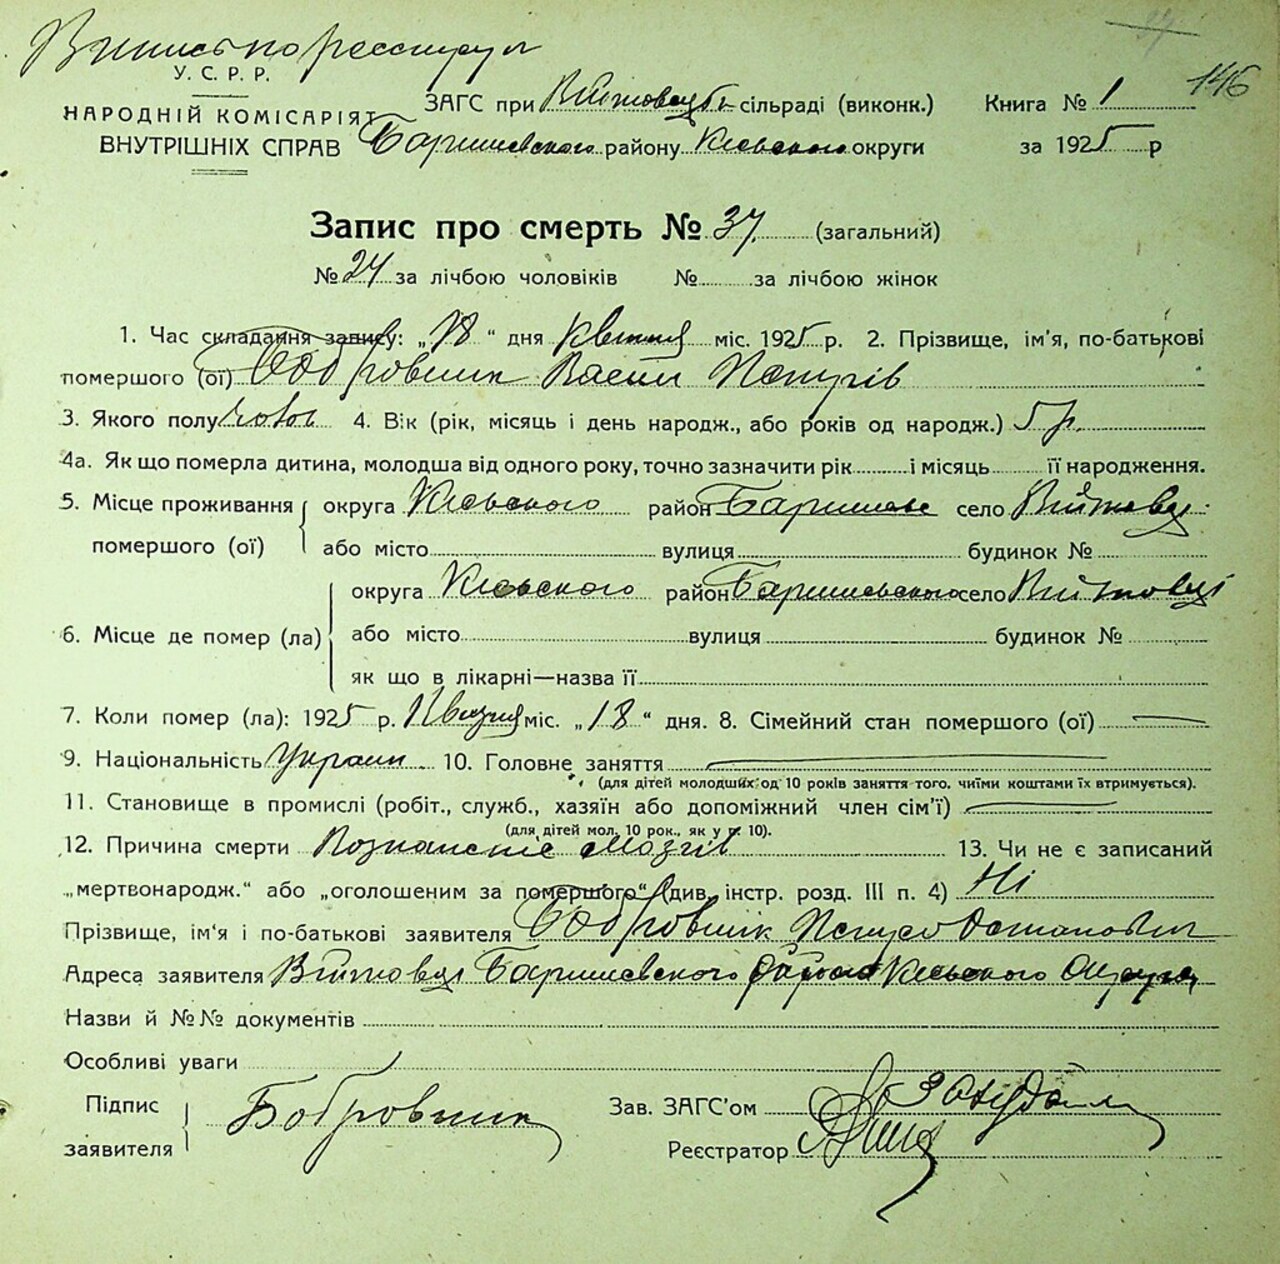 146
У. С. Р. Р.
НАРОДНІЙ КОМІСАРІЯТ
ВНУТРІШНІХ СПРАВ
ЗАГС при сільраді (виконк.) Книга № 1
Баришевского району Киевского округи за 1925 р
Запис про смерть № 37 (загальний)
№ 24 за лічбою чоловіків № за лічбою жінок
1. Час складання запису: „18“ дня Квітня міс. 1925 р. 2. Прізвище, ім'я, по-батькові
помершого (ої) Бобровник Васил
3. Якого полу чолов 4. Вік (рік, місяць і день народж., або років од народж.) 5 р.
4а. Як що померла дитина, молодша від одного року, точно зазначити рік і місяць її народження.
5. Місце проживання помершого (ої)
округа Киевского район Баришевс село Війтовці
або місто вулиця будинок №
6. Місце де помер (ла)
округа Киевского район Баришевського село Війтовці
або місто вулиця будинок №
як що в лікарні—назва її
7. Коли помер (ла): 1925 р. Квітня міс. „18“ дня. 8. Сімейний стан помершого (ої) —
9. Національність Украин 10. Головне заняття —
(для дітей молодших од 10 років заняття того, чиїми коштами їх втримується).
11. Становище в промислі (робіт., служб., хазяїн або допоміжний член сім'ї) —
(для дітей мол. 10 рок., як у п. 10).
12. Причина смерти мозгів 13. Чи не є записаний
„мертвонародж.“ або „оголошеним за помершого“ (див. інстр. розд. III п. 4) Ні
Прізвище, ім‘я і по-батькові заявителя Бобровник Остапович
Адреса заявителя Війтовці Баришевского района Киевского Округа
Назви й №№ документів
Особливі уваги
Підпис заявителя Бобровник
Зав. ЗАГС'ом
Реєстратор